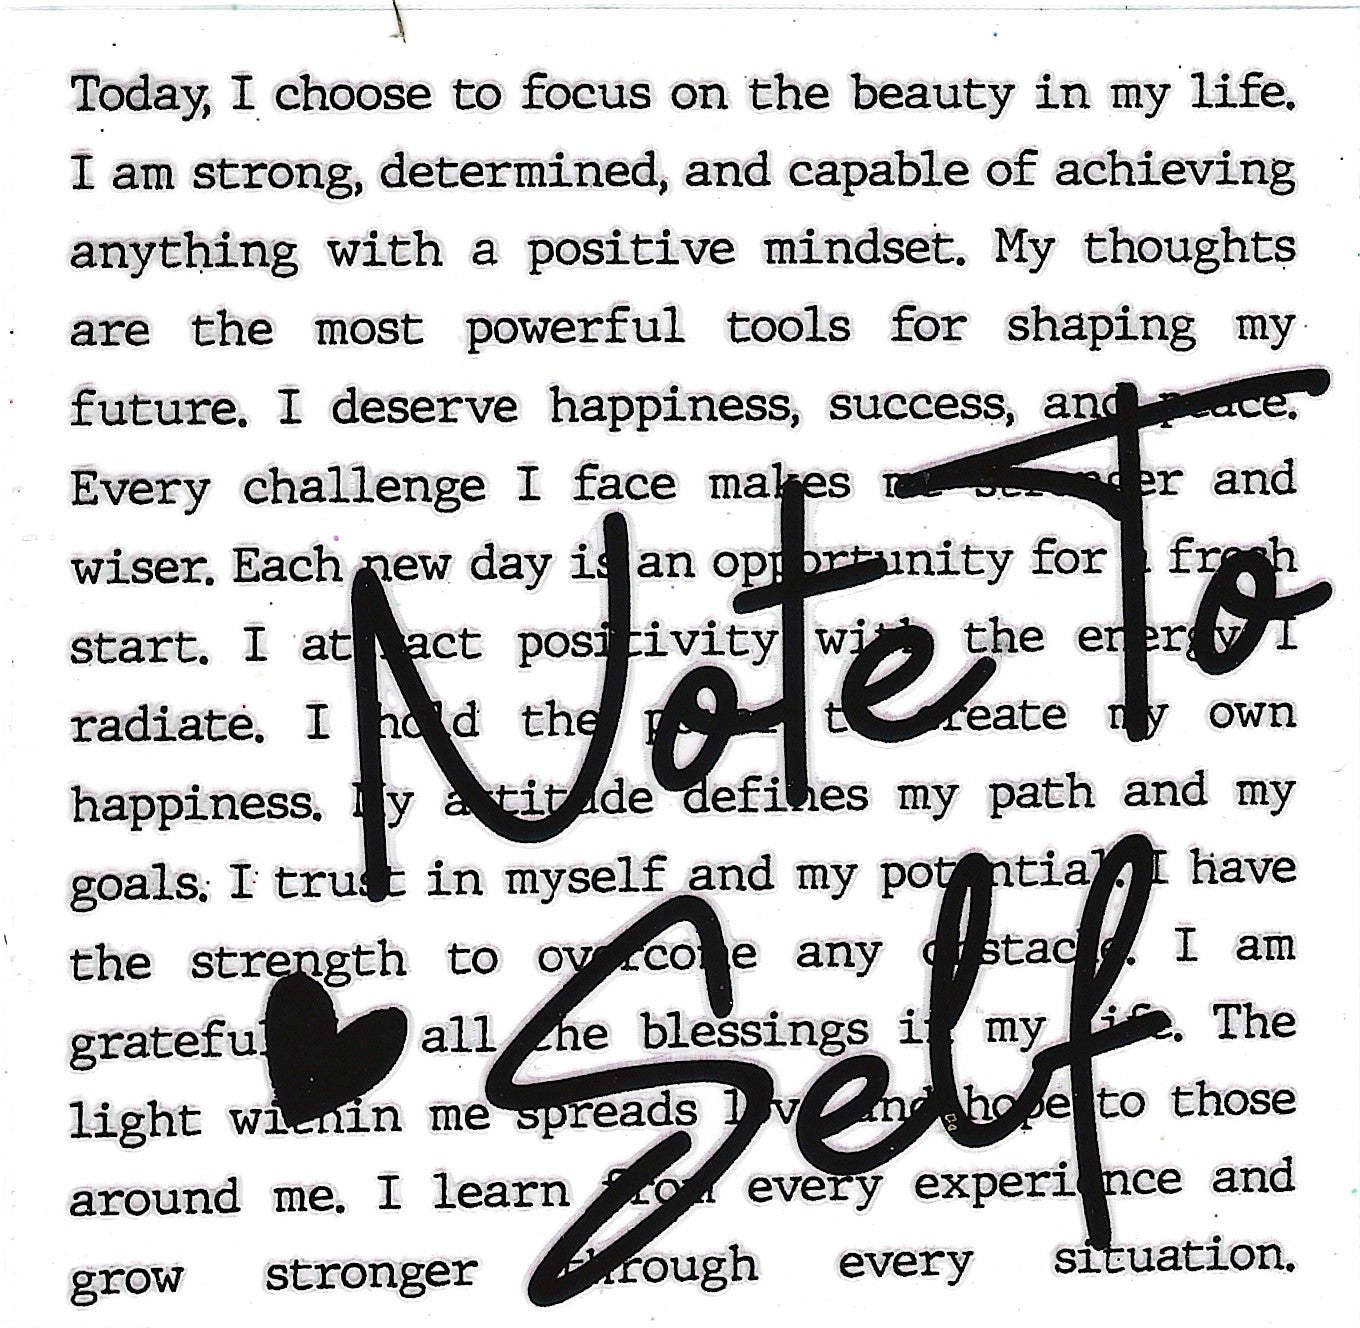 Today, I choose to focus on the beauty in my life.
I am strong, determined, and capable of achieving
anything with a positive mindset. My thoughts
are the most powerful tools for shaping my
future. I deserve happiness, success, and peace.
Every challenge I face makes me stronger and
wiser. Each new day is an opportunity for a fresh
start. I attract positivity with the energy I
radiate. I hold the power to create my own
happiness. My attitude defines my path and my
goals. I trust in myself and my potential. I have
the strength to overcome any obstacle. I am
grateful all the blessings in my life. The
light within me spreads love and hope to those
around me. I learn from every experience and
grow stronger through every situation.
Note To
Self